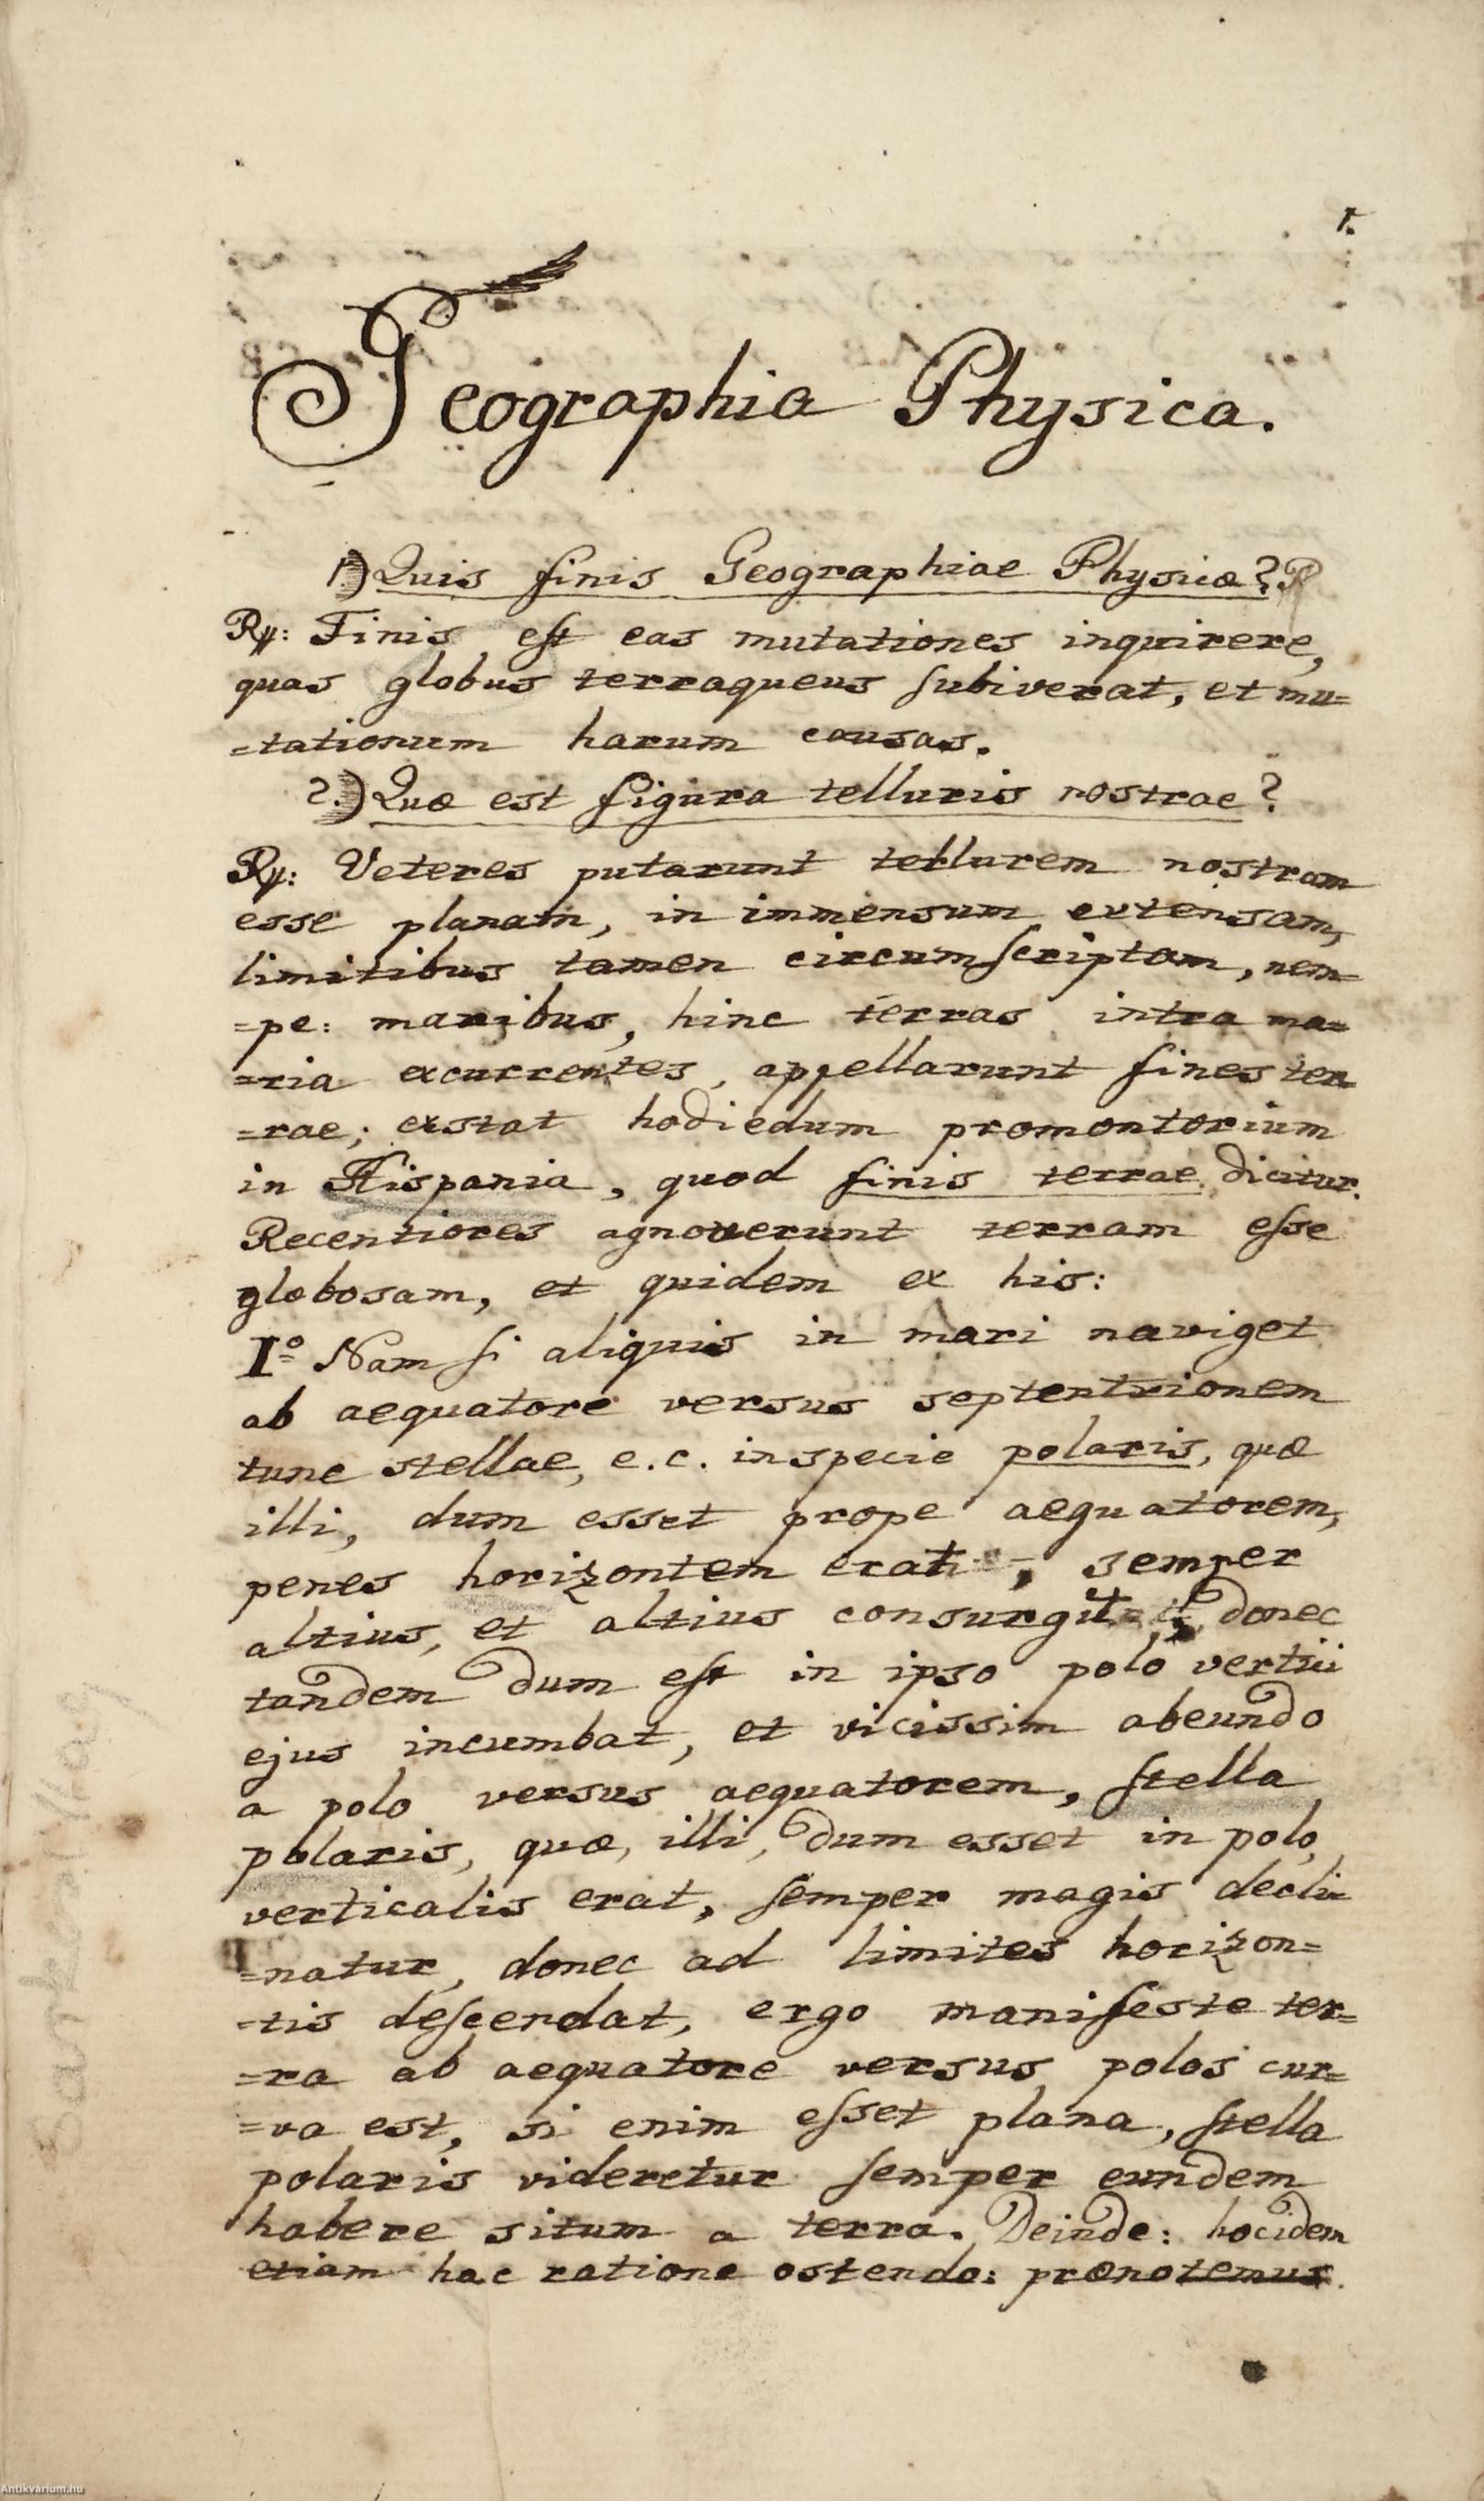 1.
Geographia Physica.
1.) Quis finis Geographiae Physicæ? R
Ry: Finis est eas mutationes inquirere,
quas globus terraqueus subiverat, et mu=
=tationum harum causas.
2.) Quæ est figura telluris nostrae?
Ry: Veteres putarunt tellurem nostram
esse planam, in immensum extensam,
limitibus tamen circumscriptam, nem=
=pe: maribus, hinc terras intra ma=
=ria excurrentes, appellarunt fines ter=
=rae; exstat hodiedum promontorium
in Hispania, quod finis terrae dicitur.
Recentiores agnoverunt terram esse
globosam, et quidem ex his:
Iº Nam si aliquis in mari naviget
ab aequatore versus septentrionem
tunc stellae, e.c. in specie polaris, quæ
illi, dum esset prope aequatorem,
penes horizontem erat, semper
altius, et altius consurgit, donec
tandem dum est in ipso polo vertici
ejus incumbat, et vicissim abeundo
a polo versus aequatorem, stella
polaris, quæ, illi, dum esset in polo,
verticalis erat, semper magis decli=
=natur, donec ad limites horizon=
=tis descendat, ergo manifeste ter=
=ra ab aequatore versus polos cur=
=va est, si enim esset plana, stella
polaris videretur semper eundem
habere situm a terra. Deinde: hocidem
etiam hac ratione ostendo: prænotemus.
Antikvárium.hu